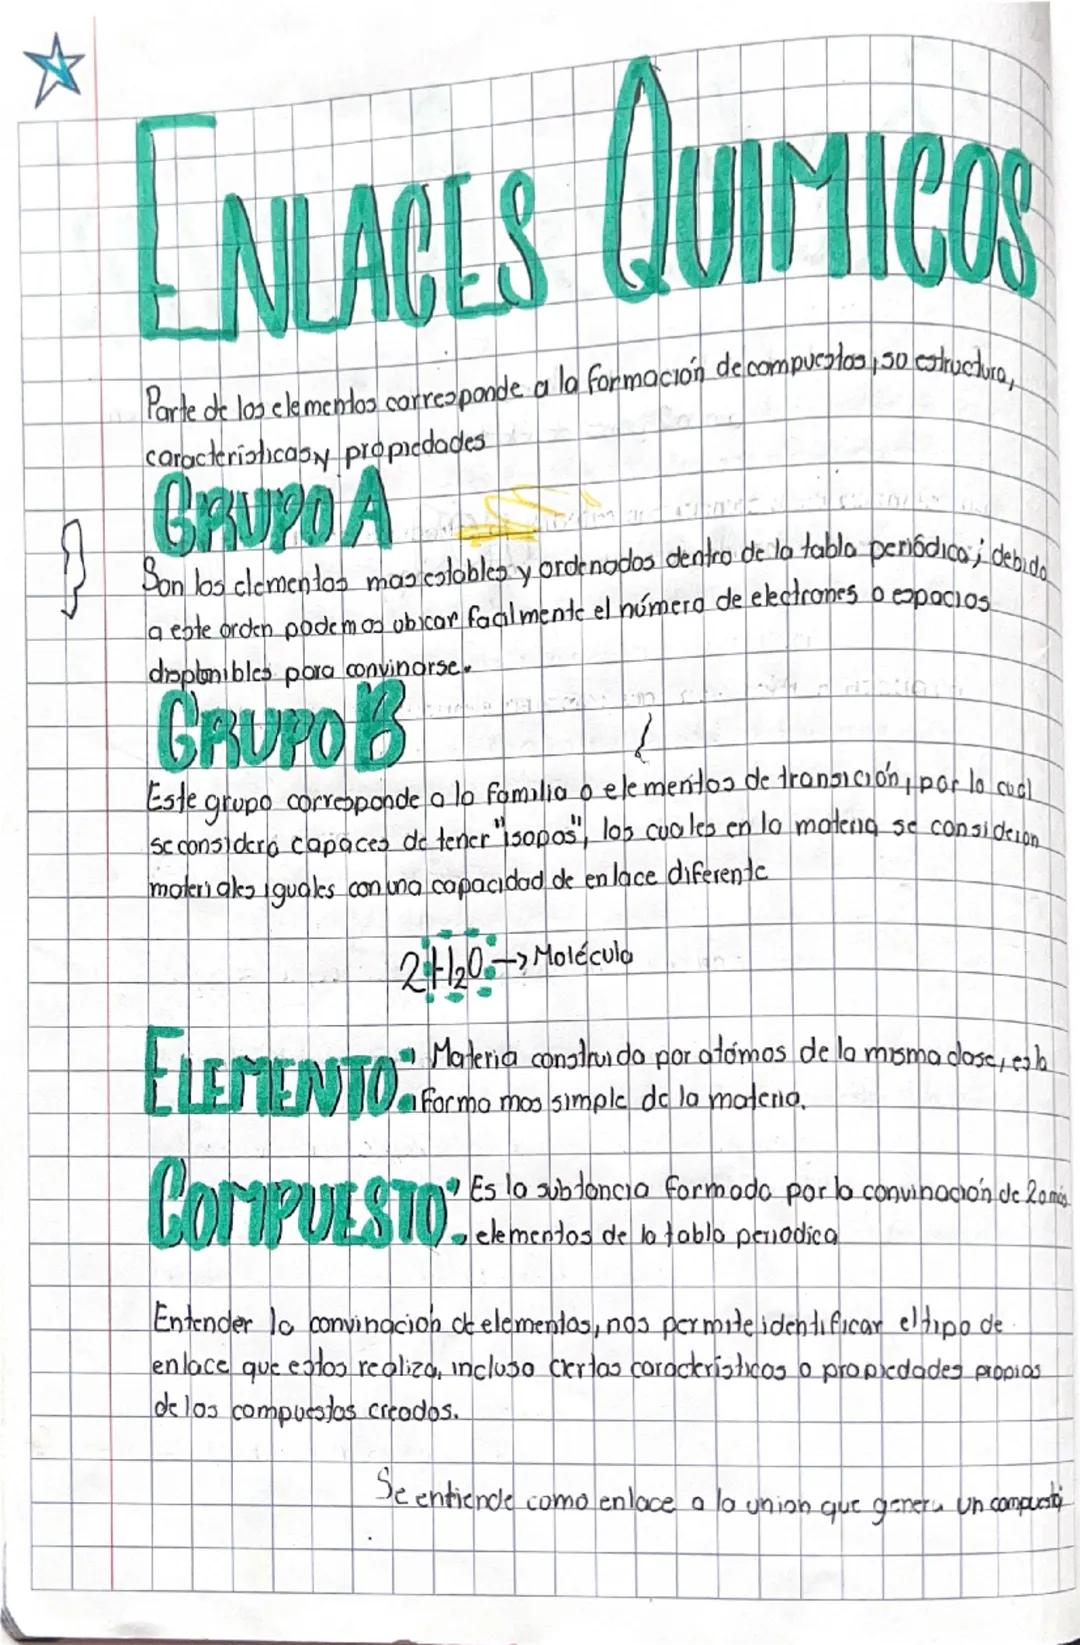 ENLACES QUIMICOS
Parte de los elementos corresponde a la formación de compuestos, so estructura,
caracteristicas y propiedades
GRUPO A
Son los elementos mas estables y ordenados dentro de la tabla periódica; debido
a este orden podemos ubicar facilmente el número de electrones o espacios
disponibles para convinarse.
GRUPO B
Este grupo corresponde a la familia o elementos de transición, por lo cual
se considera capaces de tener "isopos", los cuales en la materia se consideran
materiales iguales con una capacidad de enlace diferente
2H₂O → Molécula
ELEMENTO: Materia construida por atómos de la misma clase, es la
forma mas simple de la materia.
COMPUESTO: Es la substancia formada por la convinación de 2 o más
elementos de la tabla periodica
Entender la convinación de elementos, nos permite identificar el tipo de
enlace que estos realiza, incluso ciertas caracteristicas o propiedades propias
de los compuestos creados.
Se entiende como enlace a la union que genera un compuesto